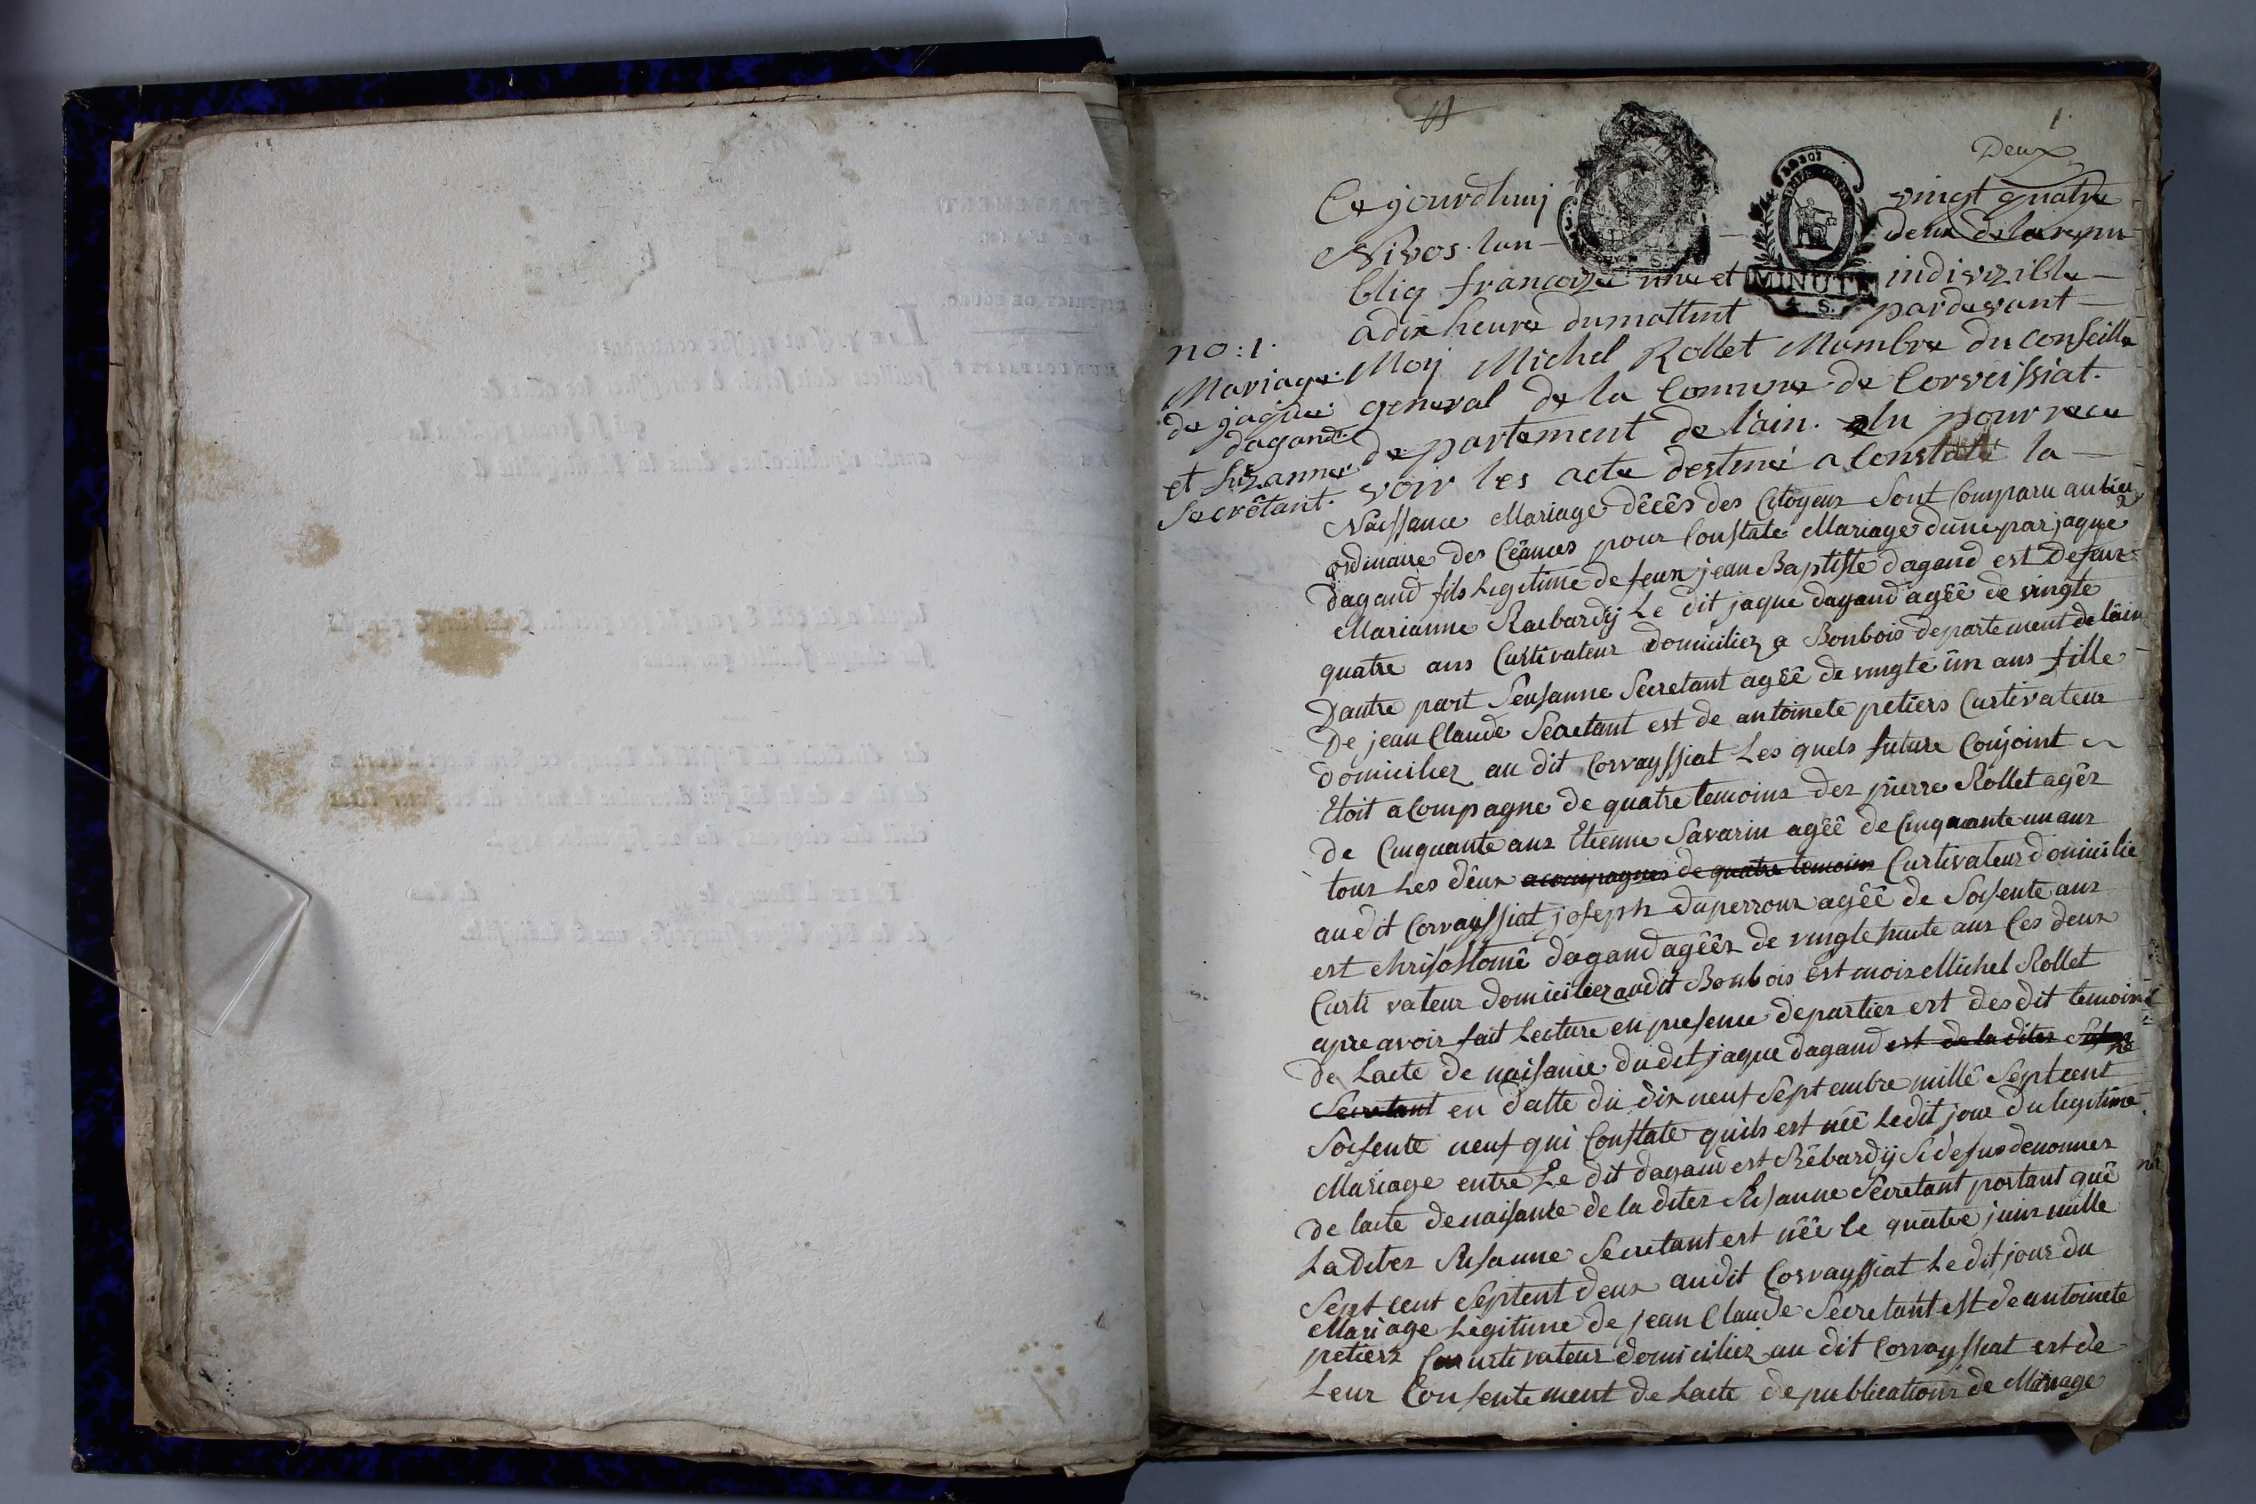 1.
Deux
Ce jourdhuij vingt quatre
Nivos. lan deux de la repu
bliq francoize une et indivizible
a dix heure du mattint pardevant
MINUTE
4. S.
no: 1.
Mariage
de jaque
dagand
et Suzanne
Secrêtant.
Moij Michel Rollet Mambre du Conseille
general de la Comune de Corveissiat.
departement de l'ain. elu pour rece
voir les acte destiné a Constaté la
Naissance Mariage dêcês des Citoyens Sont Comparu au lieu
ordinaire des Ceânces pour Constaté Mariage dune par jaque
dagand fils Legitime de feux jean Baptiste dagand est defeux
Marianne Raebardij Le dit jaque dagand agêê de vingte
quatre ans Curtivateur domiciliez a Bonbois departement de lain
Dautre part Seusanne Secretant agêê de vingte ûn ans fille
De jean Claude Secretant est de antoinete petiers Curtivateur
domiciliez au dit Corvayssiat Les quels future Conjoint
Etoit acompagne de quatre temoins dez pierre Rollet agêz
de Cinquante ans Etienne Savarin agêê de Cinquante un ans
tous Les dêux acompagnes de quatre temoins Curtivateur domicilie
au dit Corvayssiat joseph duperroux agêê de Soisente ans
est chrisostomê dagand agêêz de vingte huite ans Ces deux
Curti vateur domiciliez audit Bonbois est moiz Michel Rollet
apre avoir fait Lecture en presence departier est des dit temoin
de Lacte de naisance du dit jaque dagand est de la ditez
Secretant en datte du dix neuf Septembre millê Sept cent
Soisente neuf qui Constate quils est nêê Le dit jour du legitime
Mariage entre Le dit dagand est Rêbardij Sidesus denomez
de lacte denaisance de la ditez Susanne Secretant portant quê
La ditez Susanne Secretant est nêê le quatre juin mille
Sept cent Septent deux audit Corvayssiat Le dit jour du
Mariage Legitime de jean Claude Secretant est de antoinete
petierz Curtivateur domiciliez au dit Corvayssiat est de
Leur Consentement de Lacte de publications de Mariage